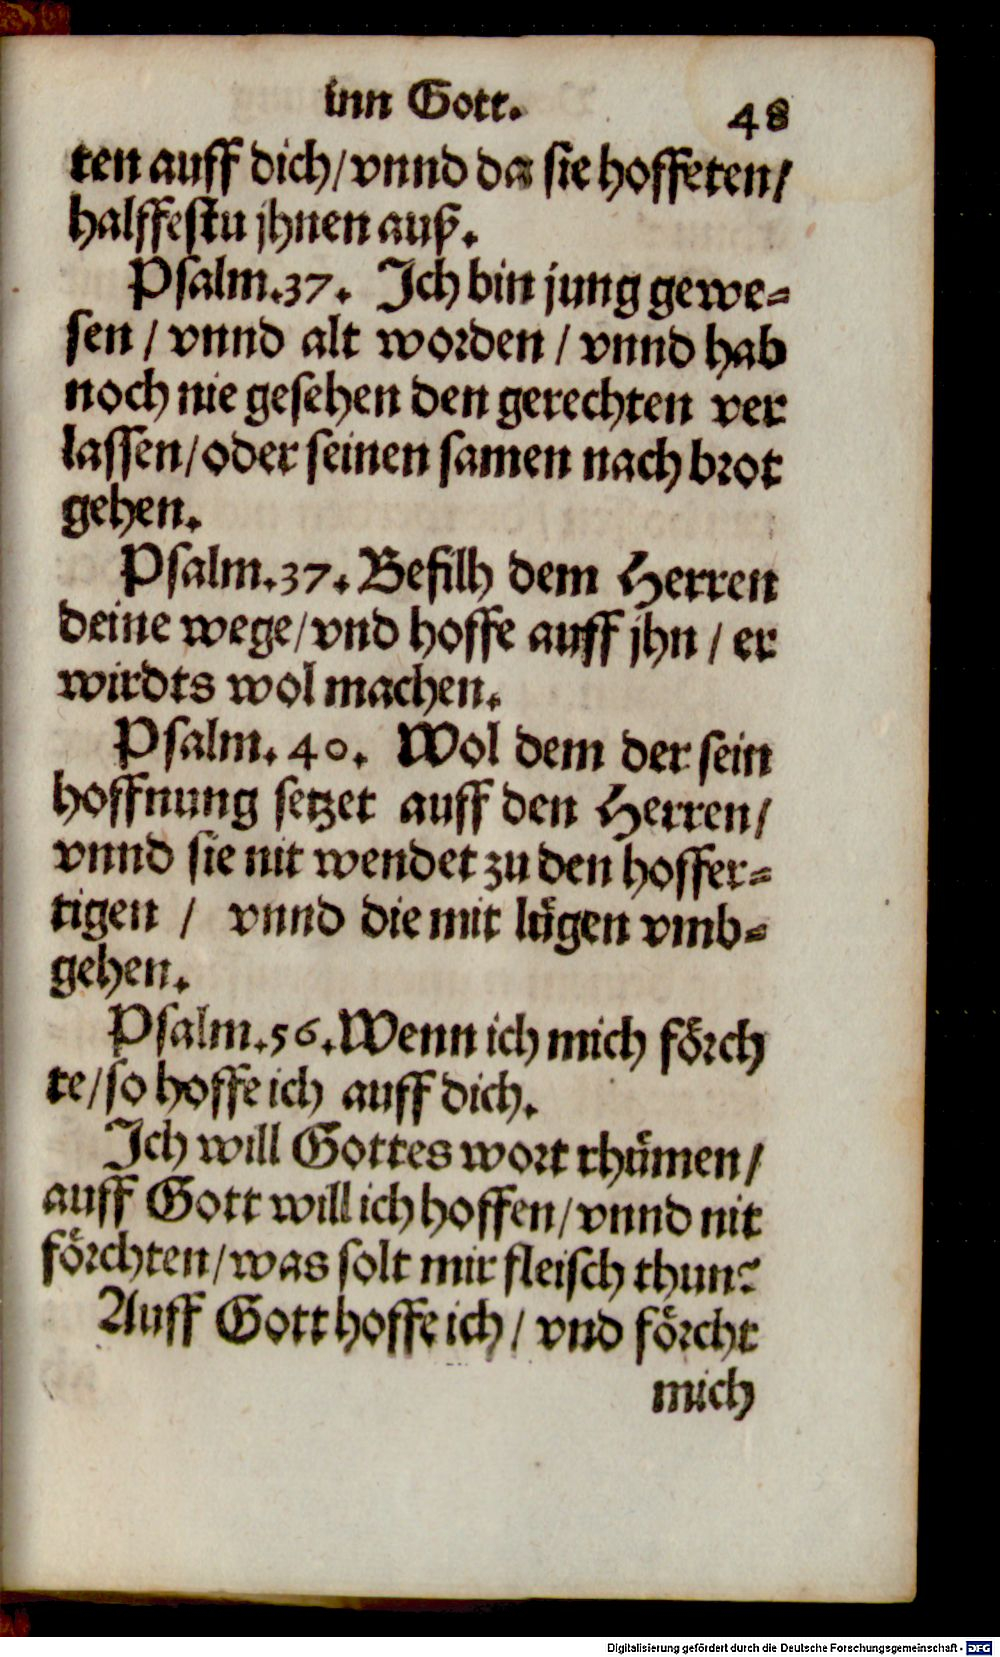 inn Gott.
48
ten auff dich/vnnd da sie hoffeten/
halffestu jhnen auß.
Psalm.37. Ich bin jung gewe-
sen / vnnd alt worden / vnnd hab
noch nie gesehen den gerechten ver
lassen/oder seinen samen nach brot
gehen.
Psalm.37. Befilh dem Herren
deine wege/vnd hoffe auff jhn / er
wirdts wol machen.
Psalm. 40. Wol dem der sein
hoffnung setzet auff den Herren/
vnnd sie nit wendet zu den hoffer-
tigen / vnnd die mit lůgen vmb-
gehen.
Psalm.56. Wenn ich mich foͤrch
te/so hoffe ich auff dich.
Ich will Gottes wort rhuͤmen/
auff Gott will ich hoffen/vnnd nit
foͤrchten/was solt mir fleisch thun?
Auff Gott hoffe ich/ vnd foͤrcht
mich
Digitalisierung gefördert durch die Deutsche Forschungsgemeinschaft - DFG